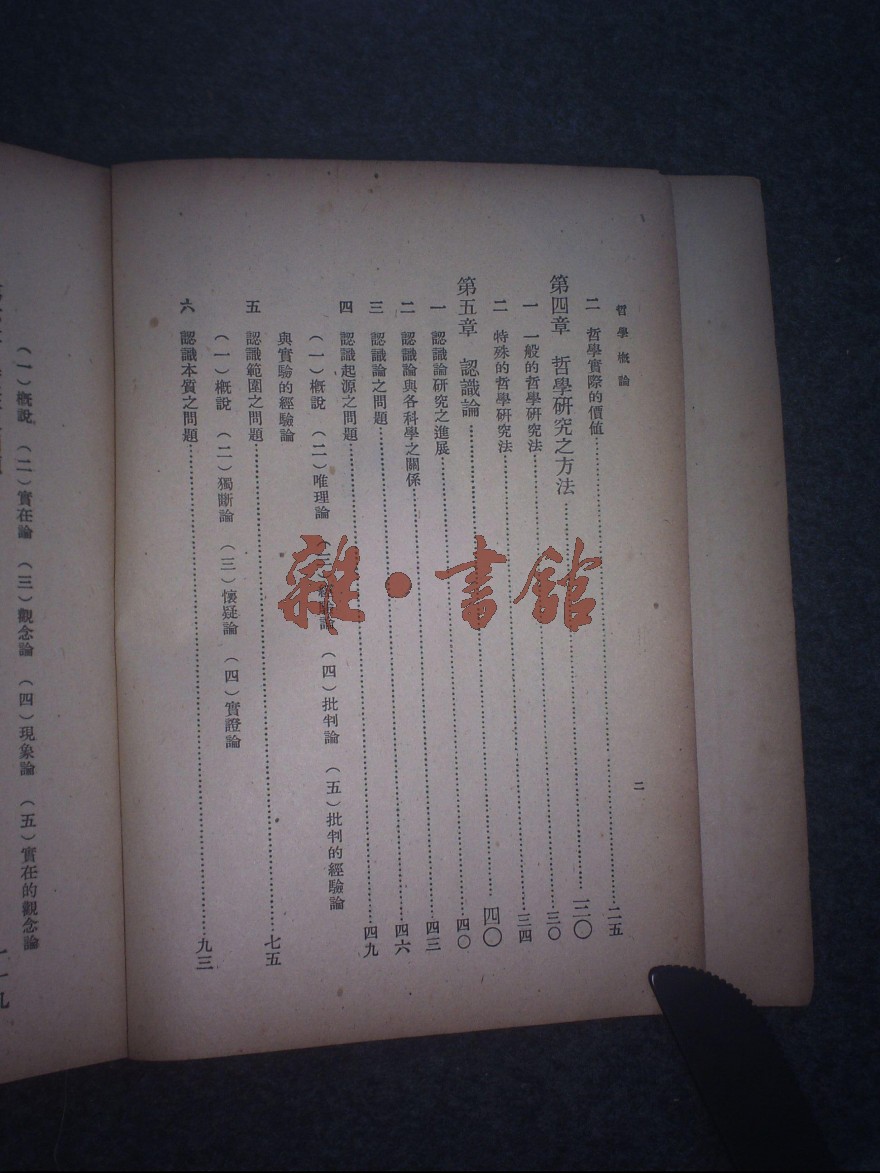 哲學概論
二
二 哲學實際的價値……二五
第四章 哲學硏究之方法……三〇
一 一般的哲學硏究法……三〇
二 特殊的哲學硏究法……三四
第五章 認識論……四〇
一 認識論硏究之進展……四〇
二 認識論與各科學之關係……四三
三 認識論之問題……四六
四 認識起源之問題……四九
（一）概說 （二）唯理論 （三）經驗論 （四）批判論 （五）批判的經驗論
與實驗的經驗論
五 認識範圍之問題……七五
（一）概說 （二）獨斷論 （三）懷疑論 （四）實證論
六 認識本質之問題……九三
（一）概說 （二）實在論 （三）觀念論 （四）現象論 （五）實在的觀念論
雜·書館